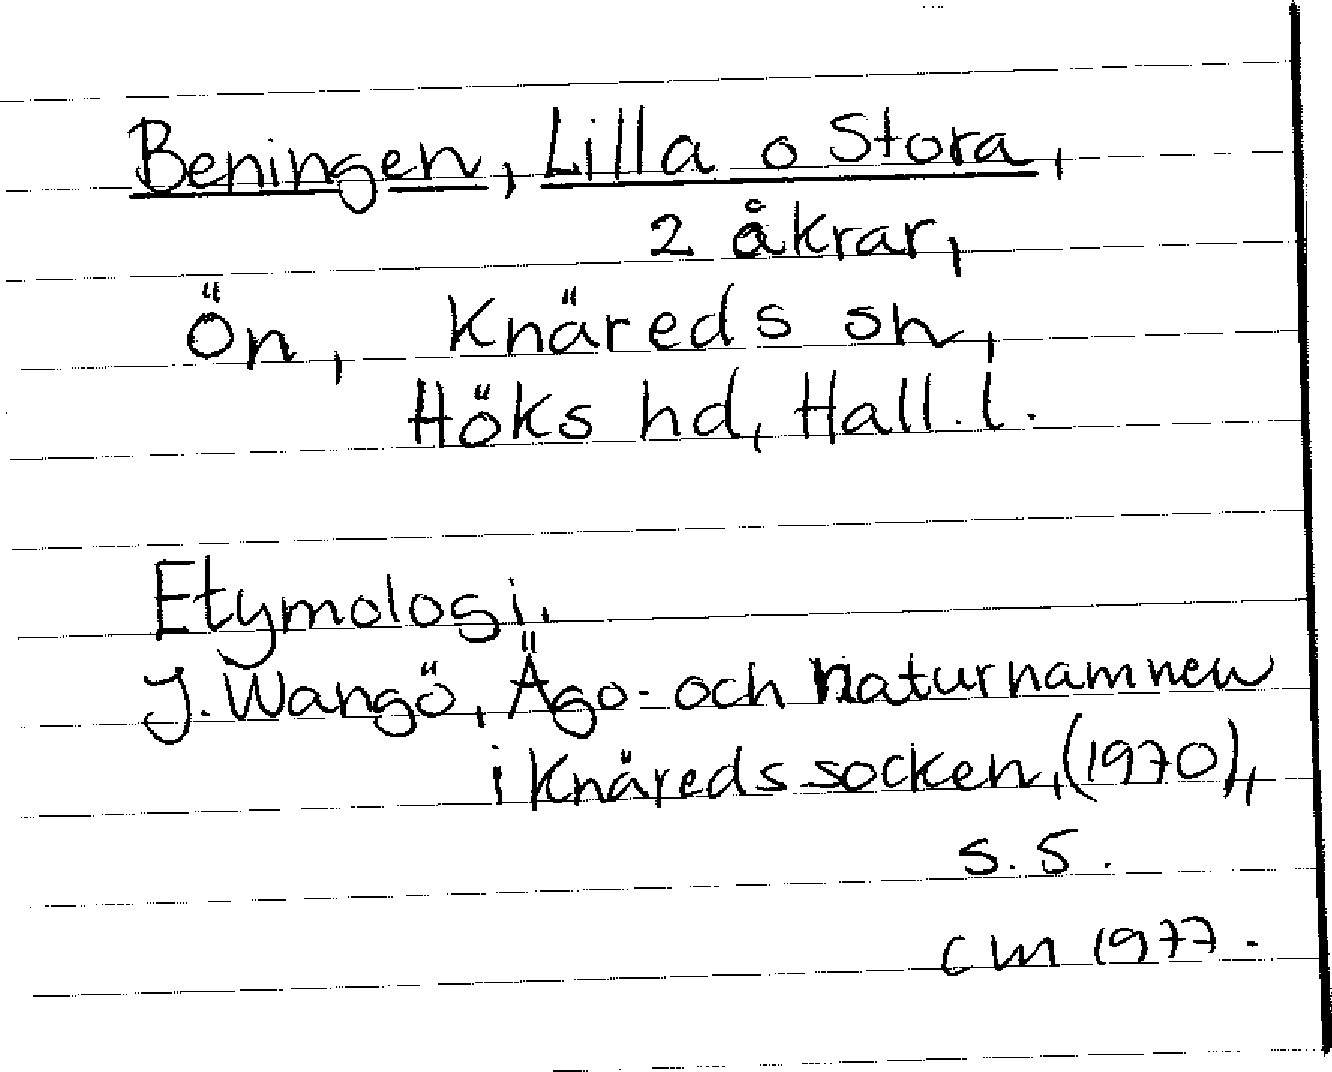 Beningen, Lilla o Stora,
2 åkrar,
Ön, Knäreds sn,
Höks hd, Hall. l.
Etymologi.
J. Wangö, Ägo- och naturnamnen
i Knäreds socken, (1970),
s. 5.
CM 1977.